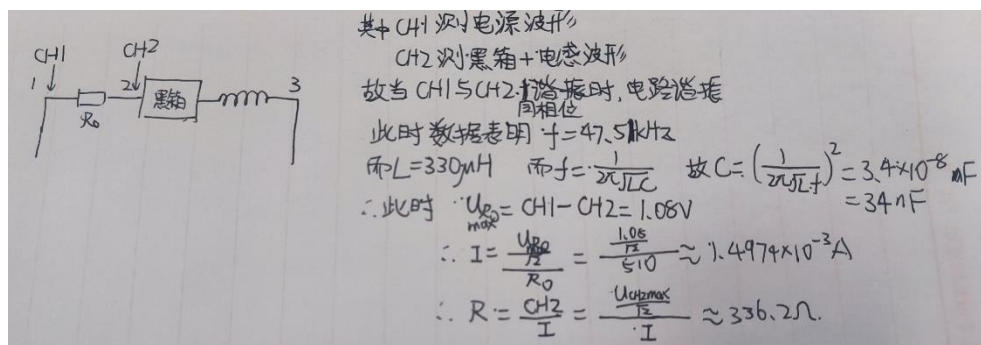 其中 CH1 测电源波形
CH2 测黑箱+电感波形
故当 CH1与CH2 同相位时, 电路谐振
此时数据表明 f=47.51kHz
而L=330μH 而f=1/(2π√LC) 故C=(1/(2π√L f))²=3.4×10⁻⁸ F
=34nF
∴此时 U_R0max=CH1-CH2=1.08V
∴ I=(U_R0/√2)/R0=(1.08/√2)/510≈1.4974×10⁻³A
∴ R=CH2/I=(U_CH2max/√2)/I≈336.2Ω.
CH1
CH2
1
2
3
R0
黑箱